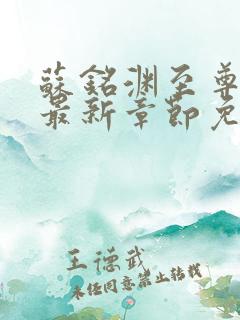 蘇銘渊至尊
最新章節免
王德武
未经同意禁止转载